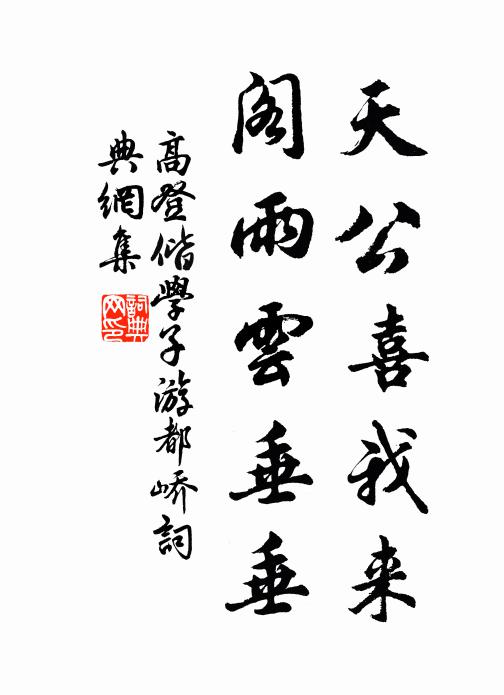 天公喜我来
阁雨雲垂垂
高登偕學子游都嶠詞
典網集
詞典
网印